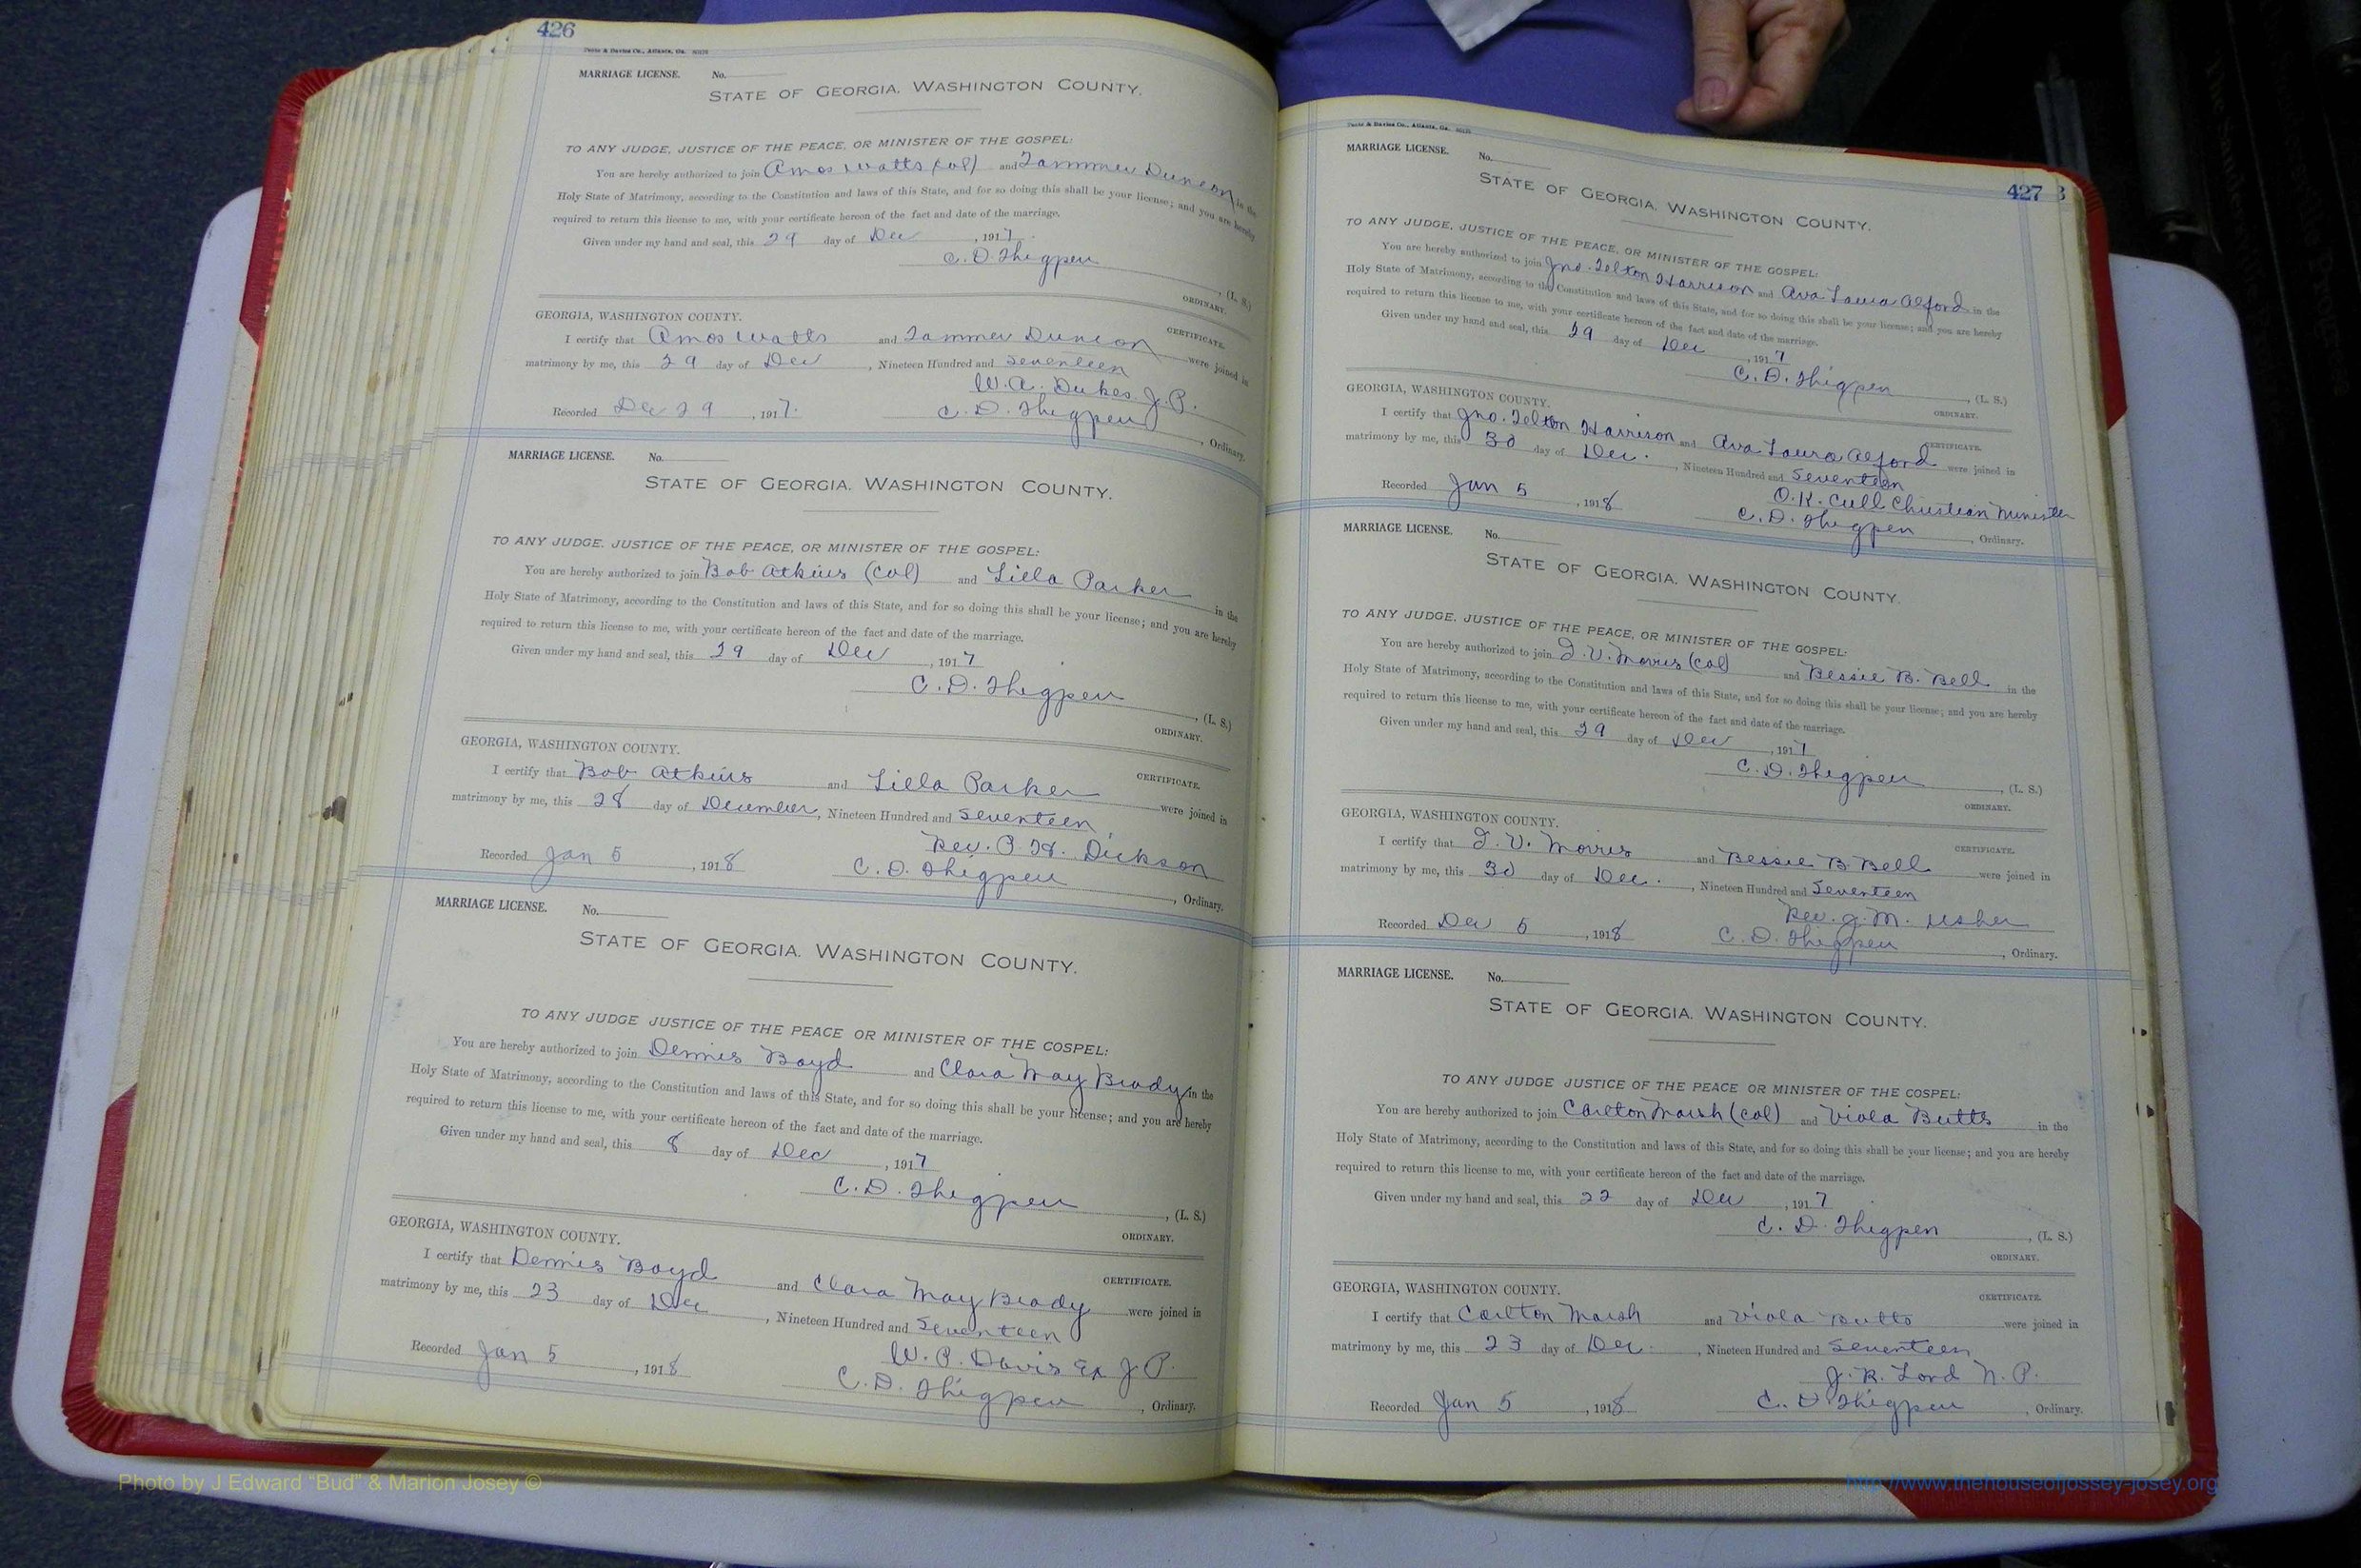 426
Foote & Davies Co., Atlanta, Ga.
MARRIAGE LICENSE. No.
STATE OF GEORGIA, WASHINGTON COUNTY.
TO ANY JUDGE, JUSTICE OF THE PEACE, OR MINISTER OF THE GOSPEL:
You are hereby authorized to join Amos Watts (col) and Tammer Duncon in the
Holy State of Matrimony, according to the Constitution and laws of this State, and for so doing this shall be your license; and you are hereby
required to return this license to me, with your certificate hereon of the fact and date of the marriage.
Given under my hand and seal, this 29 day of Dec, 1917.
C. D. Thigpen, (L. S.)
ORDINARY.
GEORGIA, WASHINGTON COUNTY.
CERTIFICATE.
I certify that Amos Watts and Tammer Duncon were joined in
matrimony by me, this 29 day of Dec, Nineteen Hundred and Seventeen
W. A. Dukes J. P.
Recorded Dec 29, 1917. C. D. Thigpen, Ordinary.
MARRIAGE LICENSE. No.
STATE OF GEORGIA. WASHINGTON COUNTY.
TO ANY JUDGE, JUSTICE OF THE PEACE, OR MINISTER OF THE GOSPEL:
You are hereby authorized to join Bob Atkins (col) and Lilla Parker in the
Holy State of Matrimony, according to the Constitution and laws of this State, and for so doing this shall be your license; and you are hereby
required to return this license to me, with your certificate hereon of the fact and date of the marriage.
Given under my hand and seal, this 29 day of Dec, 1917
C. D. Thigpen, (L. S.)
ORDINARY.
GEORGIA, WASHINGTON COUNTY.
CERTIFICATE.
I certify that Bob Atkins and Lilla Parker were joined in
matrimony by me, this 28 day of December, Nineteen Hundred and Seventeen
Rev. P. H. Dickson
Recorded Jan 5, 1918 C. D. Thigpen, Ordinary.
MARRIAGE LICENSE. No.
STATE OF GEORGIA. WASHINGTON COUNTY.
TO ANY JUDGE JUSTICE OF THE PEACE OR MINISTER OF THE GOSPEL:
You are hereby authorized to join Dennis Boyd and Clara May Brady in the
Holy State of Matrimony, according to the Constitution and laws of this State, and for so doing this shall be your license; and you are hereby
required to return this license to me, with your certificate hereon of the fact and date of the marriage.
Given under my hand and seal, this 8 day of Dec, 1917
C. D. Thigpen, (L. S.)
ORDINARY.
GEORGIA, WASHINGTON COUNTY.
CERTIFICATE.
I certify that Dennis Boyd and Clara May Brady were joined in
matrimony by me, this 23 day of Dec, Nineteen Hundred and Seventeen
W. P. Davis Ex J P.
Recorded Jan 5, 1918 C. D. Thigpen, Ordinary.
427
Foote & Davies Co., Atlanta, Ga.
MARRIAGE LICENSE. No.
STATE OF GEORGIA, WASHINGTON COUNTY.
TO ANY JUDGE, JUSTICE OF THE PEACE, OR MINISTER OF THE GOSPEL:
You are hereby authorized to join Jno. Telton Harrison and Ava Laura Alford in the
Holy State of Matrimony, according to the Constitution and laws of this State, and for so doing this shall be your license; and you are hereby
required to return this license to me, with your certificate hereon of the fact and date of the marriage.
Given under my hand and seal, this 29 day of Dec, 1917
C. D. Thigpen, (L. S.)
ORDINARY.
GEORGIA, WASHINGTON COUNTY.
CERTIFICATE.
I certify that Jno. Telton Harrison and Ava Laura Alford were joined in
matrimony by me, this 30 day of Dec., Nineteen Hundred and Seventeen
O. K. Cull Christian Minister
Recorded Jan 5, 1918 C. D. Thigpen, Ordinary.
MARRIAGE LICENSE. No.
STATE OF GEORGIA, WASHINGTON COUNTY.
TO ANY JUDGE, JUSTICE OF THE PEACE, OR MINISTER OF THE GOSPEL:
You are hereby authorized to join J. V. Morris (col) and Bessie B. Bell in the
Holy State of Matrimony, according to the Constitution and laws of this State, and for so doing this shall be your license; and you are hereby
required to return this license to me, with your certificate hereon of the fact and date of the marriage.
Given under my hand and seal, this 29 day of Dec, 1917
C. D. Thigpen, (L. S.)
ORDINARY.
GEORGIA, WASHINGTON COUNTY.
CERTIFICATE.
I certify that J. V. Morris and Bessie B. Bell were joined in
matrimony by me, this 30 day of Dec., Nineteen Hundred and Seventeen
Rev. G. M. Usher
Recorded Dec 5, 1918 C. D. Thigpen, Ordinary.
MARRIAGE LICENSE. No.
STATE OF GEORGIA. WASHINGTON COUNTY.
TO ANY JUDGE JUSTICE OF THE PEACE OR MINISTER OF THE GOSPEL:
You are hereby authorized to join Carlton Marsh (col) and Viola Butts in the
Holy State of Matrimony, according to the Constitution and laws of this State, and for so doing this shall be your license; and you are hereby
required to return this license to me, with your certificate hereon of the fact and date of the marriage.
Given under my hand and seal, this 22 day of Dec, 1917
C. D. Thigpen, (L. S.)
ORDINARY.
GEORGIA, WASHINGTON COUNTY.
CERTIFICATE.
I certify that Carlton Marsh and Viola Butts were joined in
matrimony by me, this 23 day of Dec., Nineteen Hundred and Seventeen
J. R. Lord N. P.
Recorded Jan 5, 1918 C. D. Thigpen, Ordinary.
Photo by J Edward "Bud" & Marion Josey ©
http://www.thehouseofjossey-josey.org